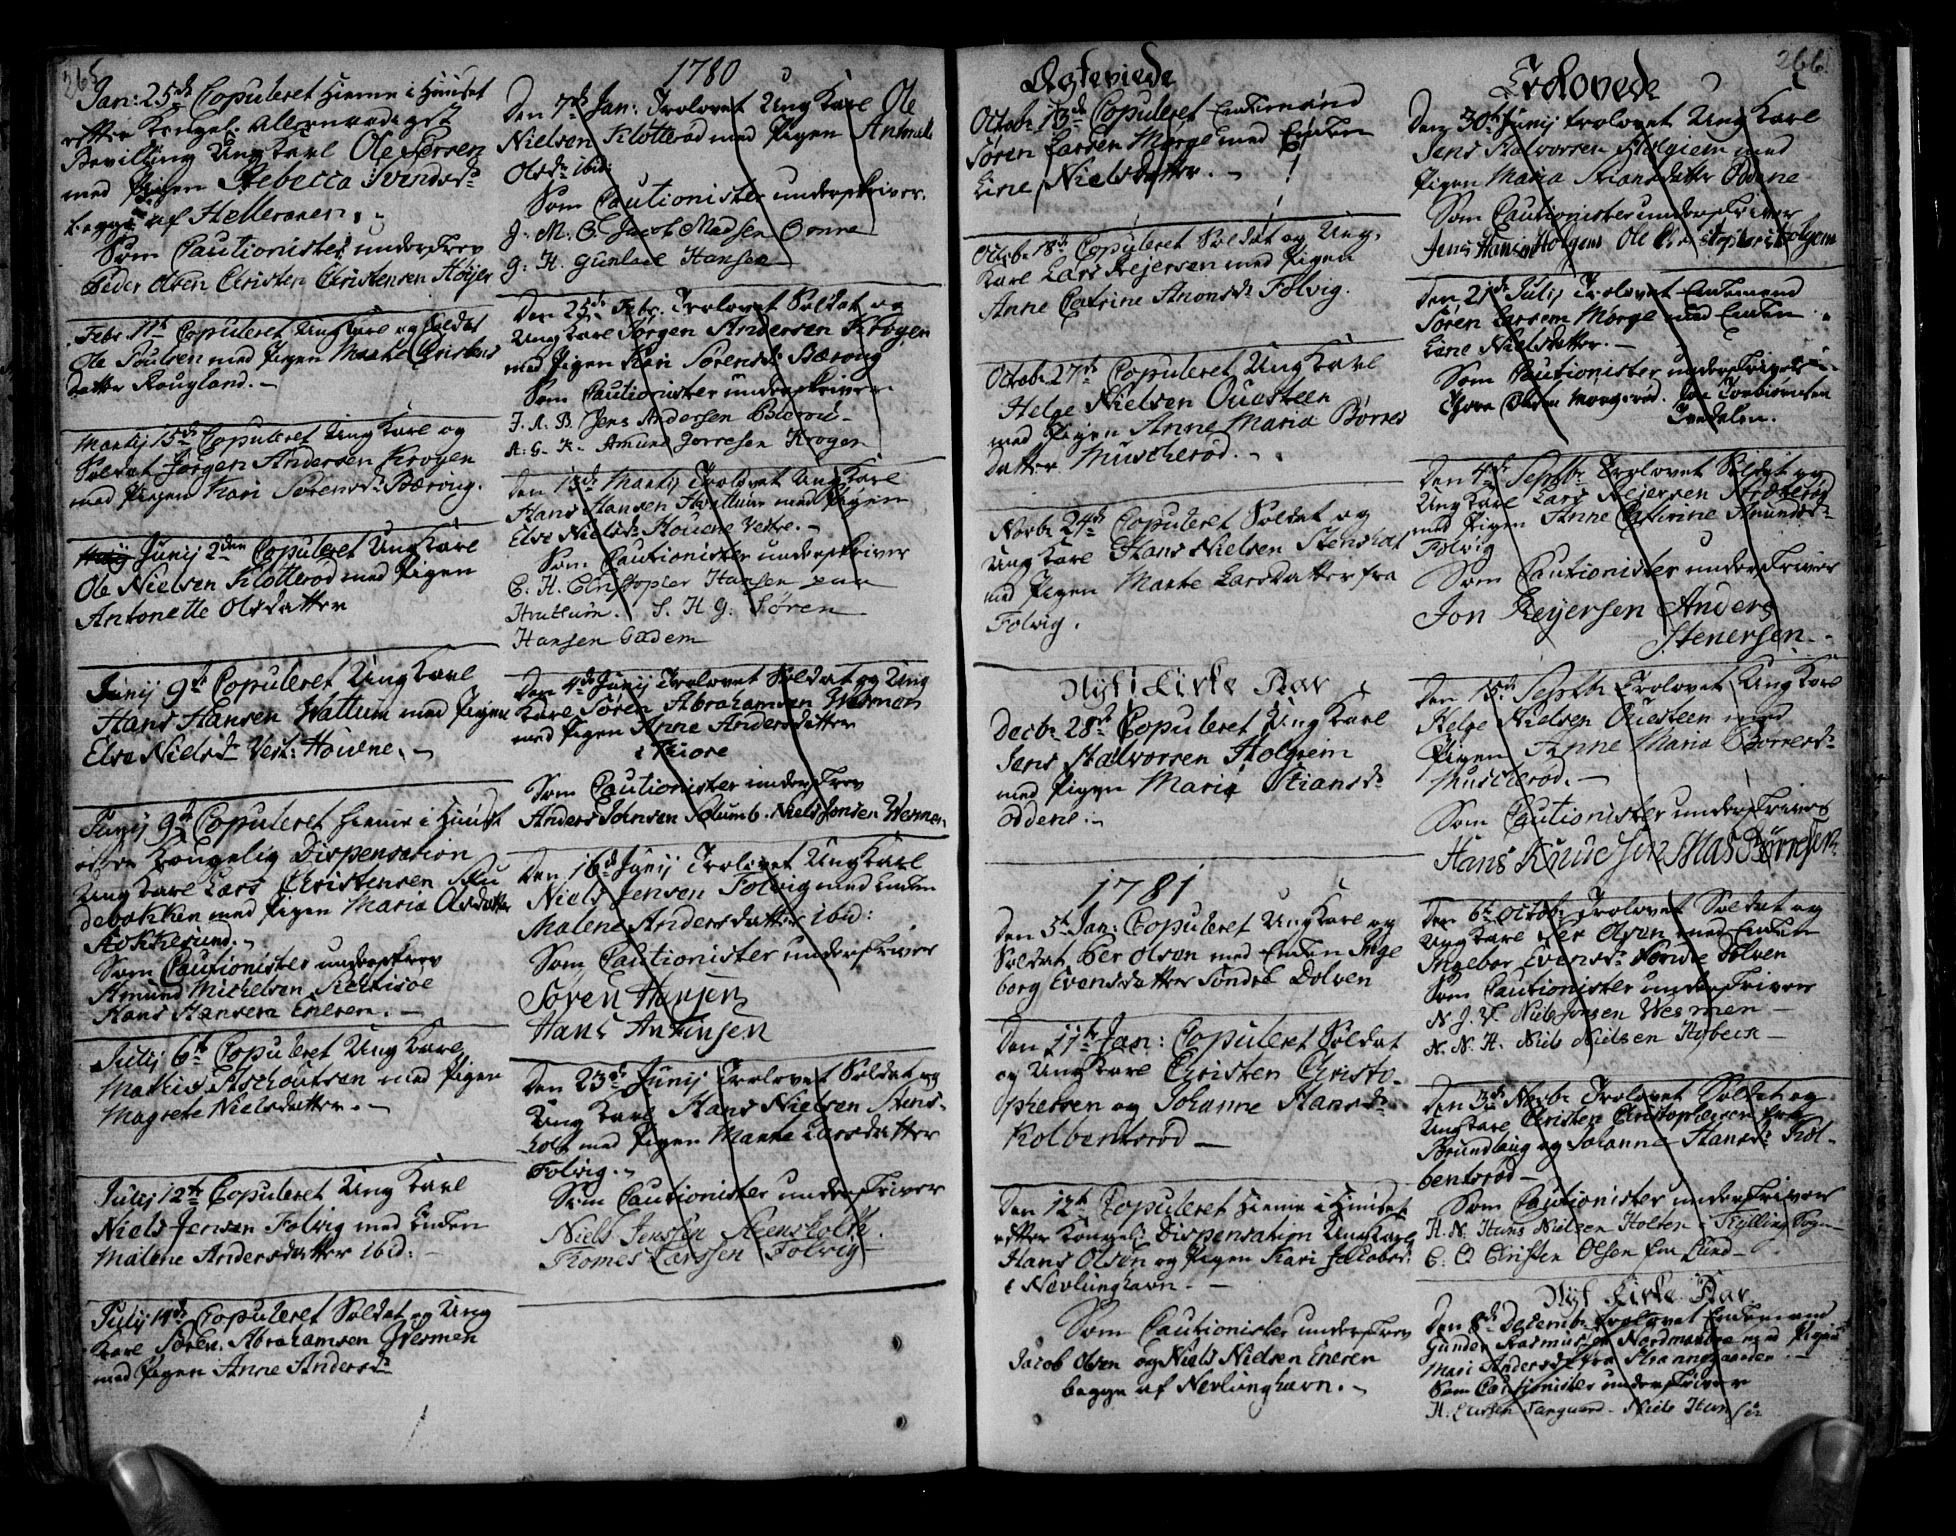 265
Jan: 25de Copuleret hieme i Huuset
efter Kongel. Allernaadigst
Bevilling Ung Karl Ole Persen
med Pigen Rebecca Svendsdr
begge af Helleranen.
Som Cautionister underskrev
Peder Olsen Christen Christensen Höyer
Febr. 11te Copuleret Ung Karl og Soldat
Ole Poulsen med Pigen Marthe Christens
datter Rougland.
Martij 15de Copuleret Ung Karl og
Soldat Jørgen Andersen Krogen
med Pigen Kari Sørensdr Bærøug.
Junij 2den Copuleret Ung Karl
Ole Nielsen Klotterød med Pigen
Antonette Olsdatter
Junij 9de Copuleret Ung Karl
Hans Hansen Vattum med Pigen
Else Nielsdr Vest: Houene.
Junij 9de Copuleret hieme i Huuset
efter Kongelig Dispensation
Ung Karl Lars Christensen Sku
debakken med Pigen Maria Olsdatter
Kokkesund.
Som Cautionister underskrev
Amund Michelsen
Hans Hansen Eneren.
Julij 6te Copuleret Ung Karl
Mathis Aschoutsen med Pigen
Magrete Nielsdatter.
Julij 12te Copuleret Ung Karl
Niels Jensen Folvig med Enken
Malene Andersdatter ibid:
Julij 14de Copuleret Soldat og Ung
Karl Søren Abrahamsen Wesmen
med Pigen Anne Andersdr
1780
Den 7de Jan: Trolovet Ung Karl Ole
Nielsen Klotterød med Pigen Antonette
Olsdr ibid:
Som Cautionister underskriver.
J. M. O. Jacob Madsen Omre
G. H. Gunlael Hansen
Den 25de Febr. Trolovet Soldat og
Ung Karl Jørgen Andersen Krogen
med Pigen Kari Sørensdr Bærøug
Som Cautionister underskriver
J. A. B. Jens Andersen Bierøu
A. G. K. Amund Jorresen Krogen
Den 13de Martij Trolovet Ung Karl
Hans Hansen Hvattum med Pigen
Else Nielsdr Houene Vestre.
Som Cautionister underskriver
C. H. Christopher Hansen paa
Hvattum. S. H. G. Søren
Hansen Gadem
Den 4de Junij Trolovet Soldat og Ung
Karl Søren Abrahamsen Wesmen
med Pigen Anne Andersdatter
i Thiore
Som Cautionister underskrev
Anders Johnsen Solumb. Niels Jonsen Wesmen.
Den 16de Junij Trolovet Ung Karl
Niels Jensen Folvig med Enken
Malene Andersdatter ibid:
Som Cautionister underskriver
Søren Hansen
Hans Antinsen
Den 23de Junij Trolovet Soldat og
Ung Karl Hans Nielsen Stens-
holt med Pigen Marthe Larsdatter
Folvig.
Som Cautionister underskriver
Niels Jenssen Steensholte.
Thomes Larssen Folvig
Ægteviede
Octobr 13de Copuleret Enkemand
Søren Larsen Morge med Enken
Line Nielsdatter.
Octobr 18de Copuleret Soldat og Ung
Karl Lars Rejersen med Pigen
Anne Catrine Amonsdr Folvig.
Octobr 27de Copuleret Ung Karl
Helge Nielsen Ouesteen
med Pigen Anne Maria Børres
datter Muscherød.
Novbr 24de Copuleret Soldat og
Ung Karl Hans Nielsen Stensholt
med Pigen Marthe Larsdatter fra
Folvig.
Nyt Kirke Aar
Decbr 28de Copuleret Ung Karl
Jens Halvorsen Holgiem
med Pigen Maria Stiansdr
Oddene.
1781
Den 5te Jan: Copuleret Ung Karl og
Soldat Per Olsen med Enken Inge
borg Evensdatter Søndre Dolven
Den 11te Jan: Copuleret Soldat
og Ung Karl Christen Christo-
phersen og Johanne Hansdr
Kolbentsrød
Den 12te Copuleret hieme i Huuset
efter Kongel: Dispensation Ung Karl
Hans Olsen og Pigen Kari Jacobsdr
i Nevlunghavn.
Som Cautionister underskrev
Jacob Olsen og Niels Nielsen Eneren
begge af Nevlunghavn.
266.
Trolovede
Den 30te Junij Trolovet Ung Karl
Jens Halvorsen Holgiem med
Pigen Maria Stiansdatter Oddene
Som Cautionister underskriver
Jens Hansen Holgiem Ole Christophers Holgiem
Den 21de Julij Trolovet Enkemand
Søren Larsen Morge med Enken
Line Nielsdatter.
Som Cautionister underskriver
Thore Olsen Morgerød. Jon Torbiørnsen
Tvedalen.
Den 4de Septbr Trolovet Soldat og
Ung Karl Lars Rejersen
med Pigen Anne Cathrine Amundsdr
Folvig
Som Cautionister underskriver
Jon Reyersen Anders
Stenersen.
Den 15de Septbr Trolovet Ung Karl
Helge Nielsen Ouesteen med
Pigen Anne Maria Børresdr
Muscherød.
Som Cautionister underskriver
Hans Knudsen Mas Børresen
Den 6te Octobr Trolovet Soldat og
Ung Karl Per Olsen med Enken
Ingebor Evensdr Søndre Dolven
Som Cautionister underskriver
N. J. V. Niels Jonsen Wesmen
N. N. H. Niels Nielsen Hybeck
Den 3de Novbr Trolovet Soldat og
Ung Karl Christen Christophersen fra
Brundlaug og Johanne Hansdr Kol-
bentsrød
Som Cautionister underskriver
H. N. Hans Nielsen Holten i Kylling Sogn
C. O Christen Olsen fra Lund
Nyt Kirke Aar.
Den 8de Decembr Trolovet Enkemand
Gunder Rasmussen med Pigen
Mari Andersdr fra
Som Cautionister underskriver
H. Larsen Niels Hansen